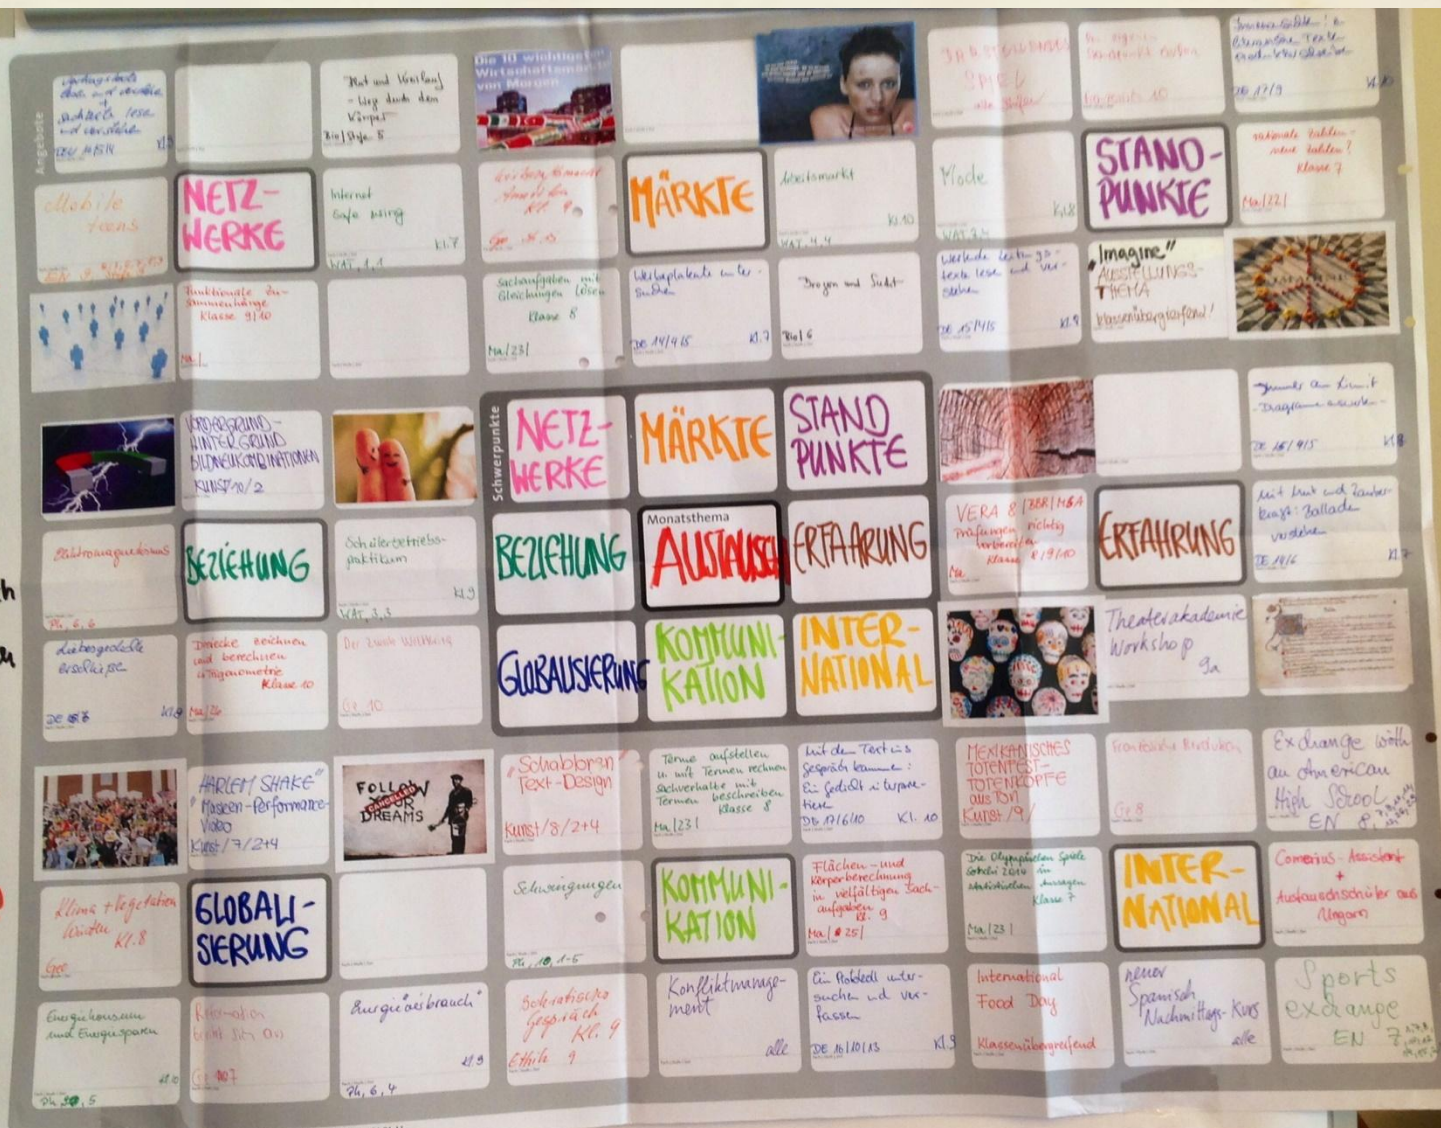 Angebote
lesen und verstehen
+
Sachtexte lesen
und verstehen
Blut und Kreislauf
- Weg durch den
Körper
Bio/Stufe 5
Die 10 wichtigsten
Wirtschaftsmärkte
von Morgen
DARSTELLENDES
SPIEL
alle Stufen
DE 17/9
Kl. 10
Mobile
teens
NETZ-
WERKE
Internet
Safe
Kl.7
WAT, 1, 1
MÄRKTE
Arbeitsmarkt
Kl.10
WAT, 4, 4
Mode
Kl.8
STAND-
PUNKTE
rationale Zahlen -
neue Zahlen?
Klasse 7
Ma/22/
Funktionale Zu-
sammenhänge
Klasse 9/10
Ma/
Sachaufgaben mit
Gleichungen lösen
Klasse 8
Ma/23/
Werbeplakate unter-
suchen
DE 14/4/5
Kl.7
Drogen und Sucht
Bio/6
texte lesen und ver-
stehen
DE 15/4/5
Kl.8
"Imagine"
AUSSTELLUNGS-
THEMA
klassenübergreifend!
VORDERGRUND-
HINTERGRUND
BILDNEUKOMBINATIONEN
KUNST/10/2
Schwerpunkte
NETZ-
WERKE
MÄRKTE
STAND
PUNKTE
Kl.8
Elektromagnetismus
Ph, 6, 6
BEZIEHUNG
Schülerbetriebs-
praktikum
Kl.9
WAT, 3,3
BEZIEHUNG
Monatsthema
AUSTAUSCH
ERFAHRUNG
VERA 8/BBR/MSA
Prüfungen richtig
vorbereiten
Klasse 8/9/10
Ma
ERFAHRUNG
Mit Mut und Zauber-
kraft: Balladen
verstehen
DE 14/6
Kl.7
Liebesgedichte
Dreiecke zeichnen
und berechnen
Trigonometrie
Klasse 10
Ma/26
Der Zweite Weltkrieg
Ge 10
GLOBALISIERUNG
KOMMUNI-
KATION
INTER-
NATIONAL
Theaterakademie
Workshop
9a
"HARLEM SHAKE"
Masken-Performance-
Video
Kunst/7/2+4
FOLLOW
YOUR
DREAMS
CANCELLED
"Schablonen
Text-Design
Kunst/8/2+4
Terme aufstellen
u. mit Termen rechnen
Sachverhalte mit
Termen beschreiben
Klasse 8
Ma/23/
Mit dem Text ins
Gespräch kommen:
Ein Gedicht interpre-
tieren
DE 17/6/10
Kl. 10
MEXIKANISCHES
TOTENFEST-
TOTENKÖPFE
aus Ton
Kunst/9/
Französische Revolution
Ge 8
Exchange with
an American
High School
EN 8
Klima + Vegetation
Wüsten
Kl.8
Geo
GLOBALI-
SIERUNG
Schwingungen
Ph, 10, 1-5
KOMMUNI-
KATION
Flächen- und
Körperberechnung
in vielfältigen Sach-
aufgaben
Kl. 9
Ma/25/
Die Olympischen Spiele
Sotchi 2014 in
statistischen Aussagen
Klasse 7
Ma/23/
INTER-
NATIONAL
Comenius-Assistent
+
Austauschschüler aus
Ungarn
Energiekonsum
und Energiesparen
Kl.10
Reformation
breitet sich aus
Energie"verbrauch"
Kl.9
Ph, 6, 4
Sokratisches
Gespräch
Kl. 9
Ethik 9
Konfliktmanage-
ment
alle
Ein Protokoll unter-
suchen und ver-
fassen
DE 16/10/13
Kl.9
International
Food Day
Klassenübergreifend
neuer
Spanisch
Nachmittags-Kurs
alle
Sports
exchange
EN 7